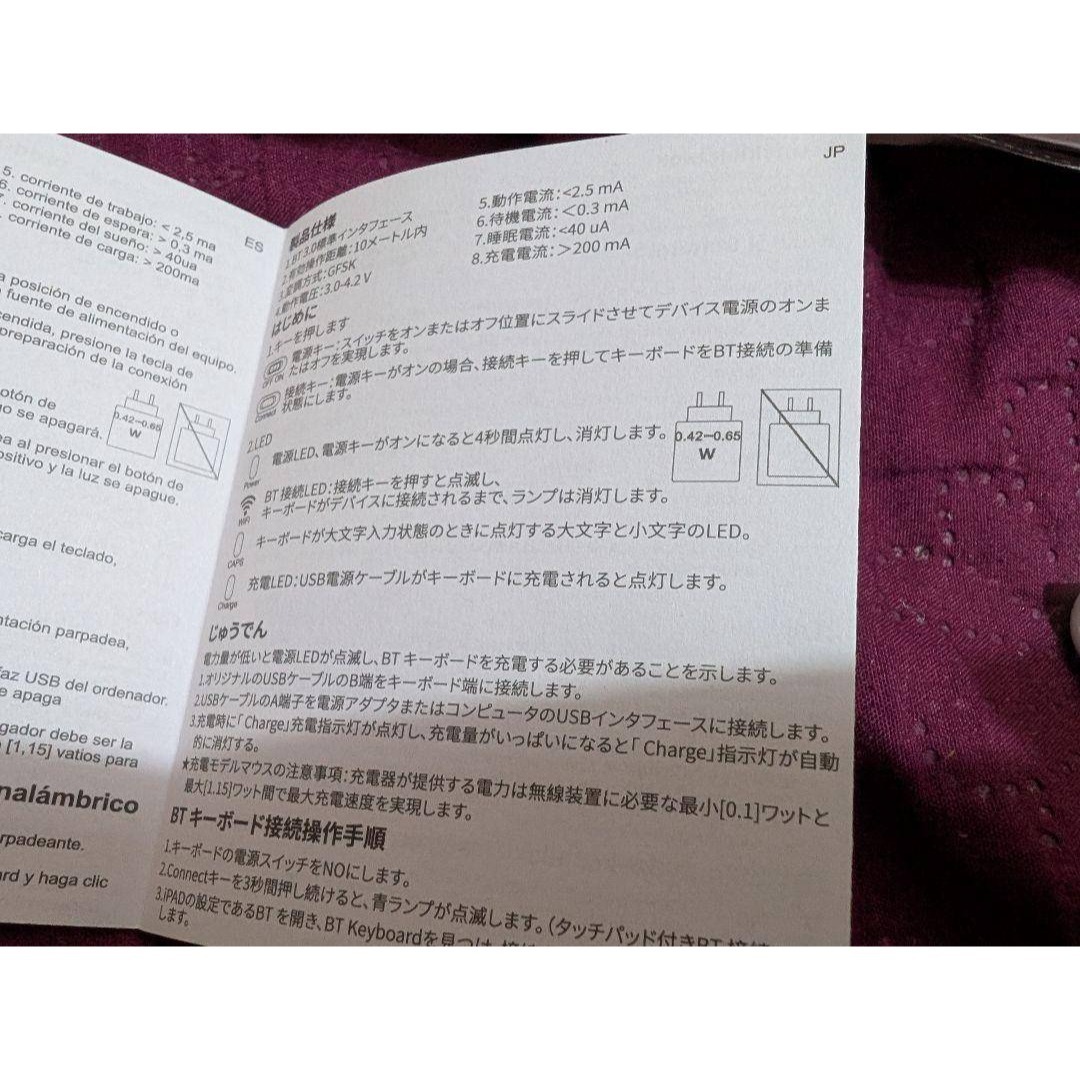 5. corriente de trabajo: < 2,5 ma
6. corriente de espera: > 0,3 ma
corriente del sueño: > 40ua
corriente de carga: > 200ma
ES
a posición de encendido o
fuente de alimentación del equipo.
cendida, presione la tecla de
preparación de la conexión
botón de
go se apagará.
0.42–0.65
W
ea al presionar el botón de
positivo y la luz se apague.
carga el teclado,
ntación parpadea,
faz USB del ordenador.
e apaga
gador debe ser la
[1,15] vatios para
nalámbrico
rpadeante.
ard y haga clic
JP
製品仕様
1.BT 3.0標準インタフェース
2.有効操作距離:10メートル内
3.変調方式:GFSK
4.動作電圧:3.0-4.2 V
5.動作電流:<2.5 mA
6.待機電流:<0.3 mA
7.睡眠電流:<40 uA
8.充電電流:>200 mA
はじめに
1.キーを押します
電源キー:スイッチをオンまたはオフ位置にスライドさせてデバイス電源のオンま
たはオフを実現します。
OFF ON
接続キー:電源キーがオンの場合、接続キーを押してキーボードをBT接続の準備
状態にします。
Connect
2.LED
電源LED、電源キーがオンになると4秒間点灯し、消灯します。
Power
0.42–0.65
W
BT 接続LED:接続キーを押すと点滅し、
キーボードがデバイスに接続されるまで、ランプは消灯します。
WiFi
キーボードが大文字入力状態のときに点灯する大文字と小文字のLED。
CAPS
充電LED:USB電源ケーブルがキーボードに充電されると点灯します。
Charge
じゅうでん
電力量が低いと電源LEDが点滅し、BT キーボードを充電する必要があることを示します。
1.オリジナルのUSBケーブルのB端をキーボード端に接続します。
2.USBケーブルのA端子を電源アダプタまたはコンピュータのUSBインタフェースに接続します。
3.充電時に「 Charge」充電指示灯が点灯し、充電量がいっぱいになると「 Charge」指示灯が自動
的に消灯する。
★充電モデルマウスの注意事項:充電器が提供する電力は無線装置に必要な最小[0.1]ワットと
最大[1.15]ワット間で最大充電速度を実現します。
BT キーボード接続操作手順
1.キーボードの電源スイッチをNOにします。
2.Connectキーを3秒間押し続けると、青ランプが点滅します。(タッチパッド付きBT 接続
3.iPADの設定であるBT を開き、BT Keyboardを見つけ、
します。